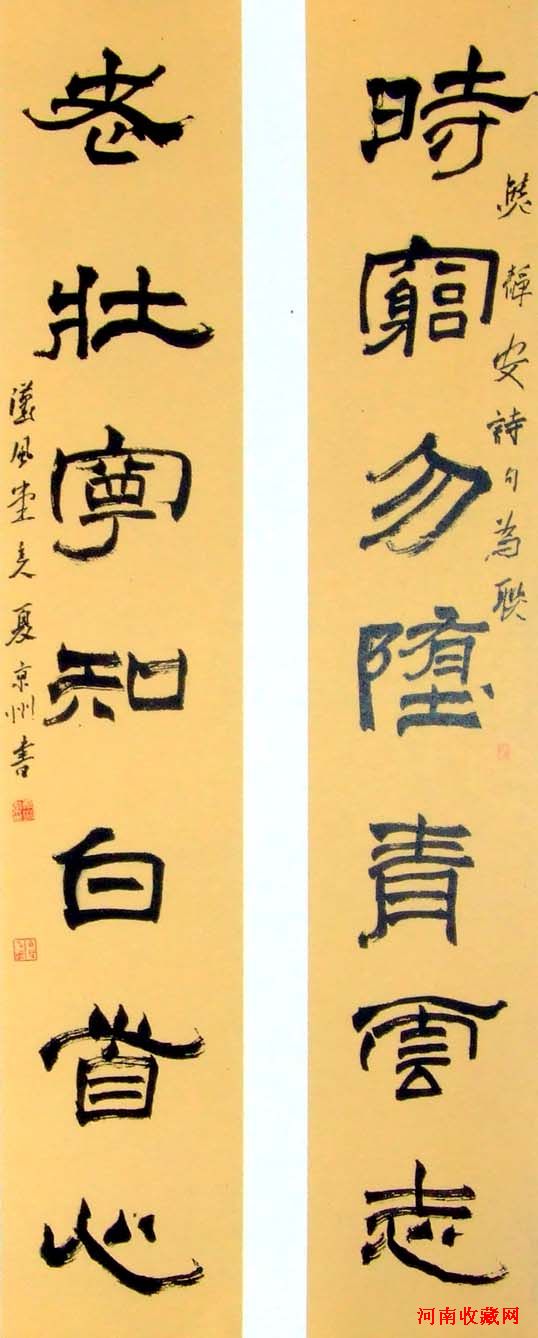 時窮勿墮青雲志
熊靜安詩句為聯
老壯寧知白首心
漢風堂主夏京州書
河南收藏网